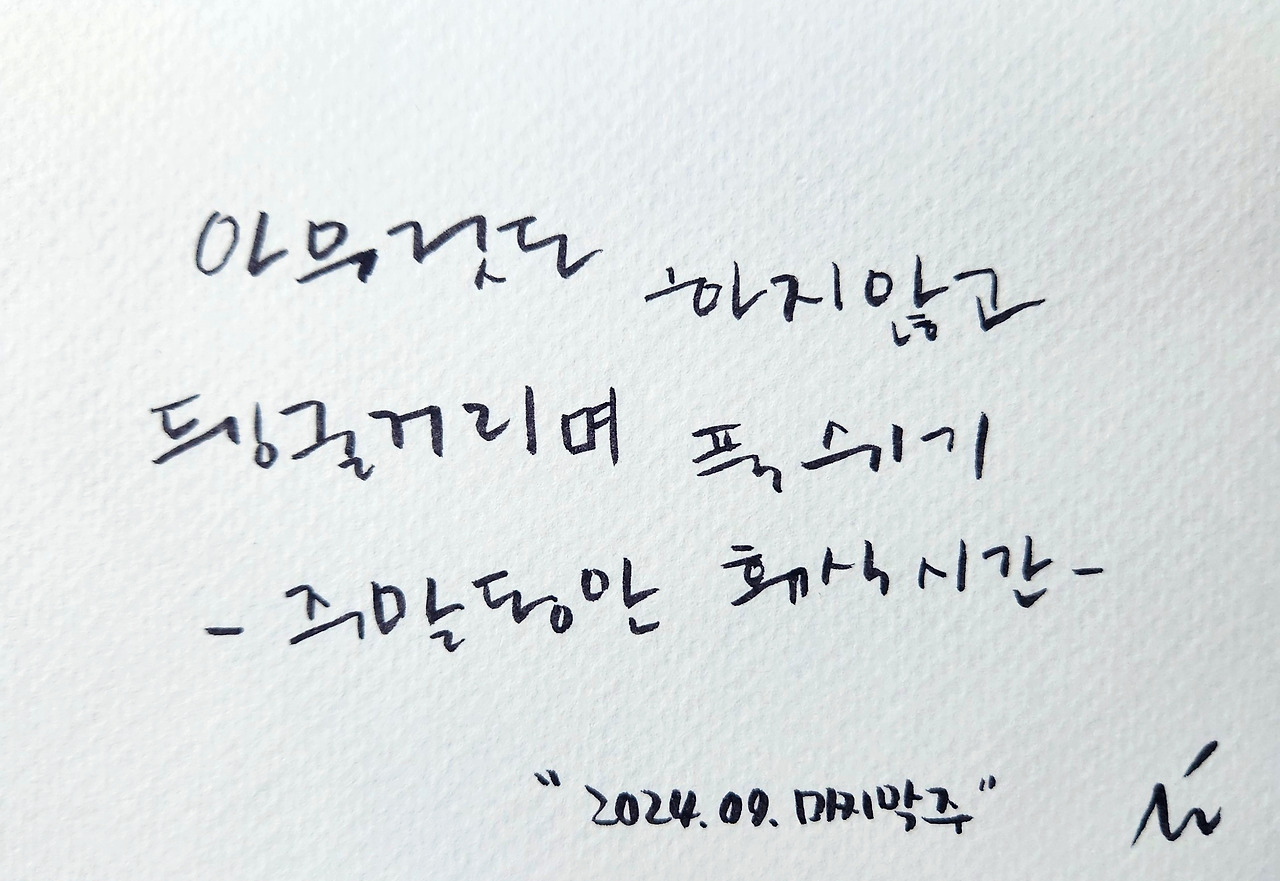 아무것도 하지않고
팅굴거리며 푹 쉬기
- 주말동안 휴식시간 -
"2024.09. 마지막주"